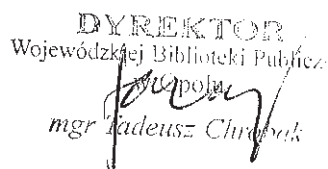 DYREKTOR
Wojewódzkiej Biblioteki Publicz
w Opolu
mgr Tadeusz Chrobak